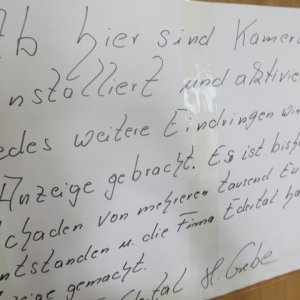 Ab hier sind Kamera
installiert und aktivie
edes weitere Eindringen wir
Anzeige gebracht. Es ist bish
chaden von mehreren tausend Eu
ntstanden u. die Firma Edeital ha
zeige gemacht.
H. Grebe